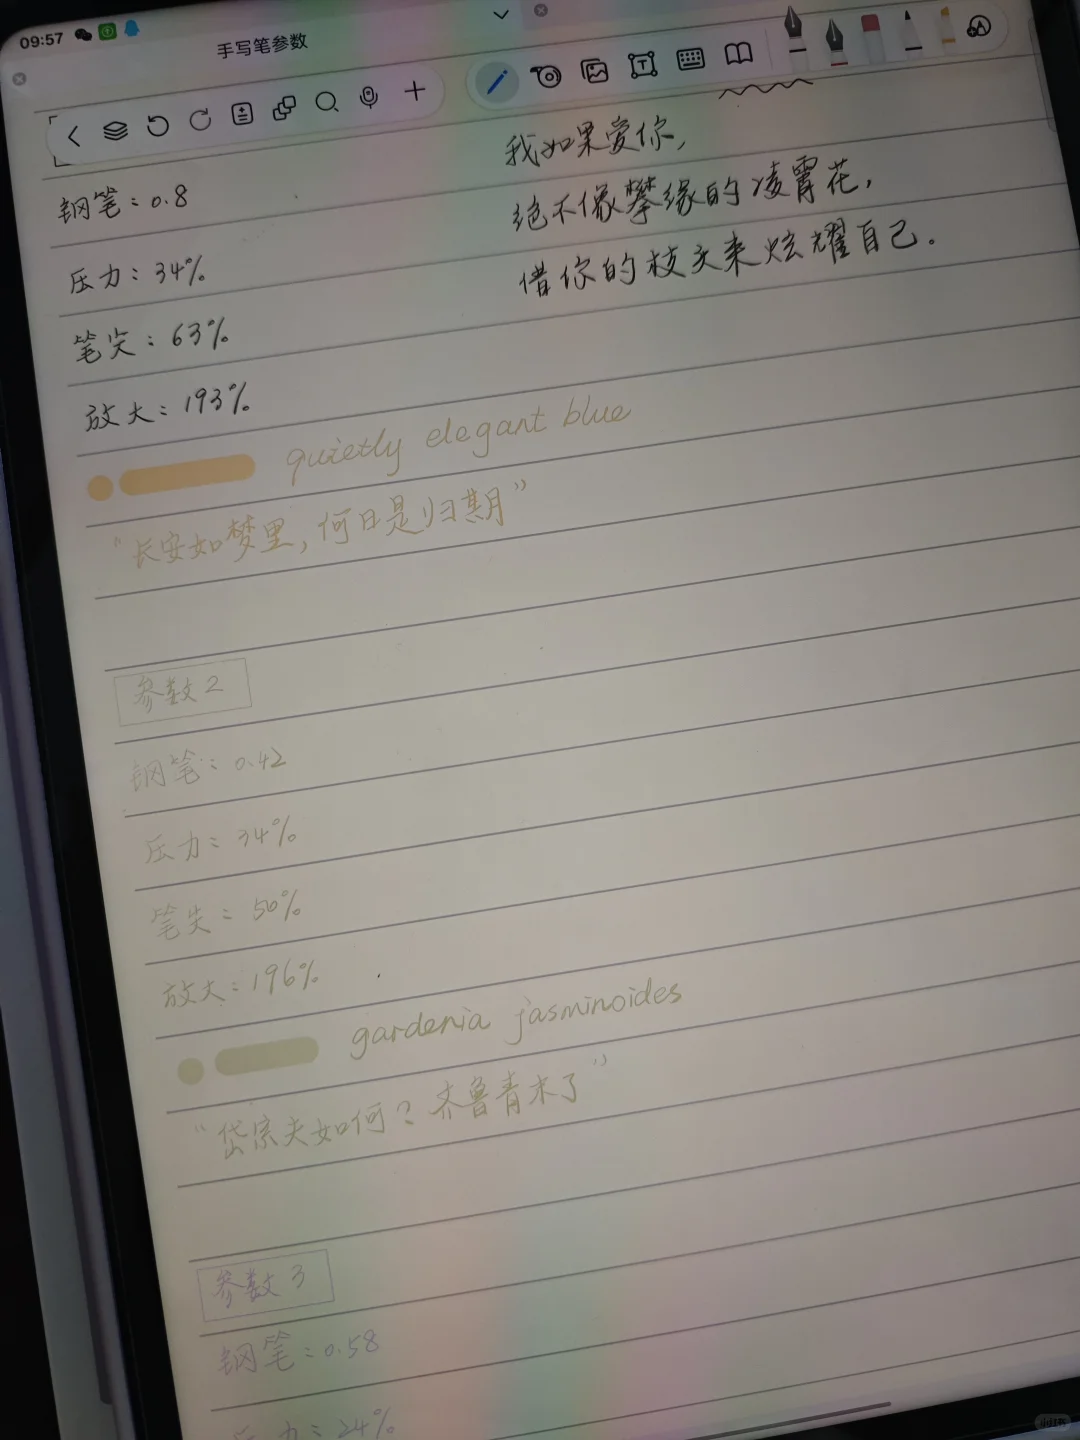 09:57
手写笔参数
钢笔：0.8
压力：34%
笔尖：63%
放大：193%
我如果爱你，
绝不像攀缘的凌霄花，
借你的枝头来炫耀自己。
quietly elegant blue
“长安如梦里，何日是归期”
参数2
钢笔：0.42
压力：34%
笔尖：50%
放大：196%
gardenia jasminoides
“岱宗夫如何？齐鲁青未了”
参数3
钢笔：0.58
压力：24%